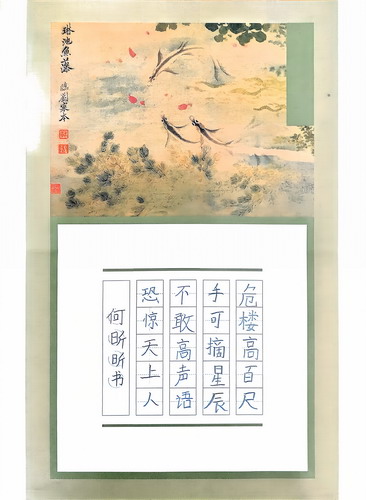 琳池魚藻
臨劉寀本
危楼高百尺
手可摘星辰
不敢高声语
恐惊天上人
何昕昕书